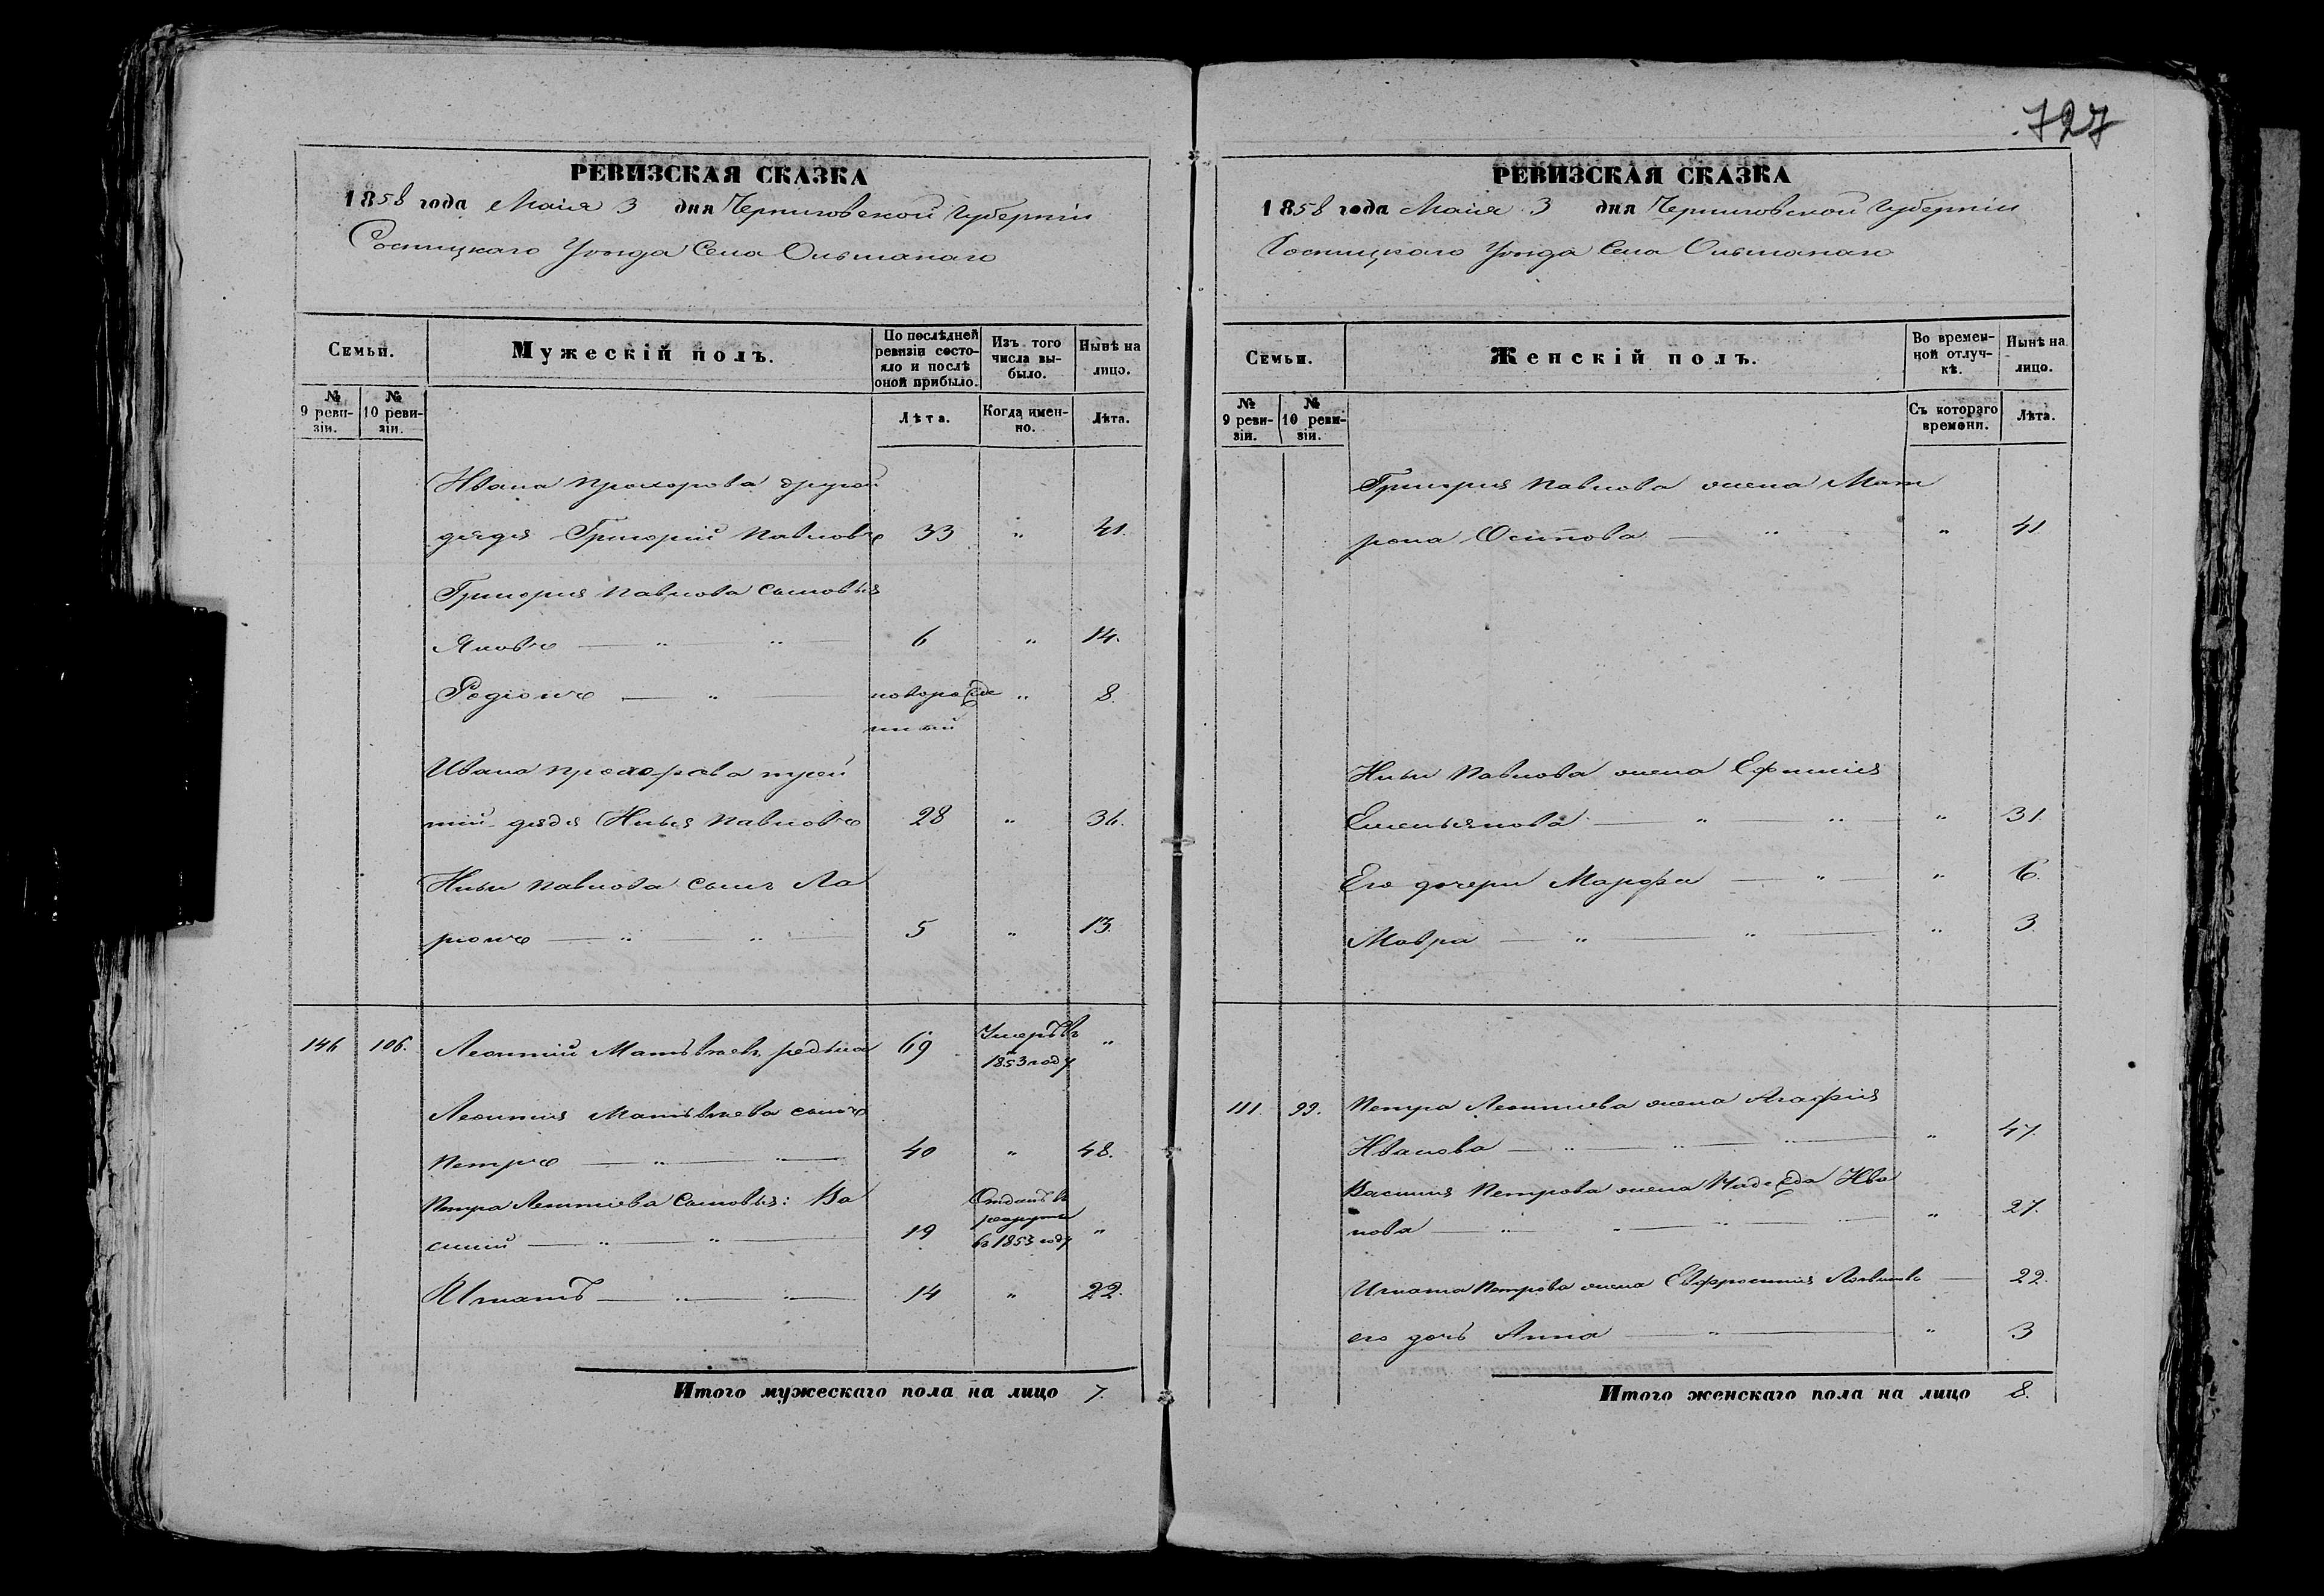 727
РЕВИЗСКАЯ СКАЗКА
1858 года Маія 3 дня Черниговской Губерніи
Сосницкаго Уѣзда Села Ольшанаго
Семьи.
Мужескій полъ.
По послѣдней ревизіи состояло и послѣ оной прибыло.
Изъ того числа выбыло.
Нынѣ на лицо.
№ 9 ревизіи.
№ 10 ревизіи.
Лѣта.
Когда именно.
Лѣта.
Ивана Прохорова другой
дядя Григорій Павловъ 33 " 41.
Григорія Павлова сыновья
Яковъ — " — " — 6 " 14.
Родіонъ — " — новорожде " 8.
нный
Ивана Прохорова трей
тій дядя Илья Павловъ 28 " 36.
Ильи Павлова сынъ Ла
ріонъ — " — " — 5 " 13.
146 106. Леонтій Матвѣевъ Редька 69 Умеръ въ 1853 году "
Леонтія Матвѣева сынъ
Петръ — " — " — 40 " 48.
Петра Леонтіева сыновья: Ва
силій — " — " — 19 Отданъ въ рекруты въ 1853 году "
Игнатъ — " — " — 14 " 22.
Итого мужескаго пола на лицо 7.
РЕВИЗСКАЯ СКАЗКА
1858 года Маія 3 дня Черниговской Губерніи
Сосницкаго Уѣзда Села Ольшанаго
Семьи.
Женскій полъ.
Во временной отлучкѣ.
Нынѣ на лицо.
№ 9 ревизіи.
№ 10 ревизіи.
Съ котораго времени.
Лѣта.
Григорія Павлова жена Мат
рона Осипова — " — " 41.
Ильи Павлова жена Ефимія
Емельянова — " — " — " 31.
Его дочери Марфа — " — " 6.
Мавра — " — " — " 3
111. 99. Петра Леонтіева жена Агафія
Иванова — " — " — " — " 47.
Василія Петрова жена Надежда Ива
нова — " — " — " — " 27.
Игната Петрова жена Евфросинія — 22.
его дочь Анна — " — " 3
Итого женскаго пола на лицо 8.